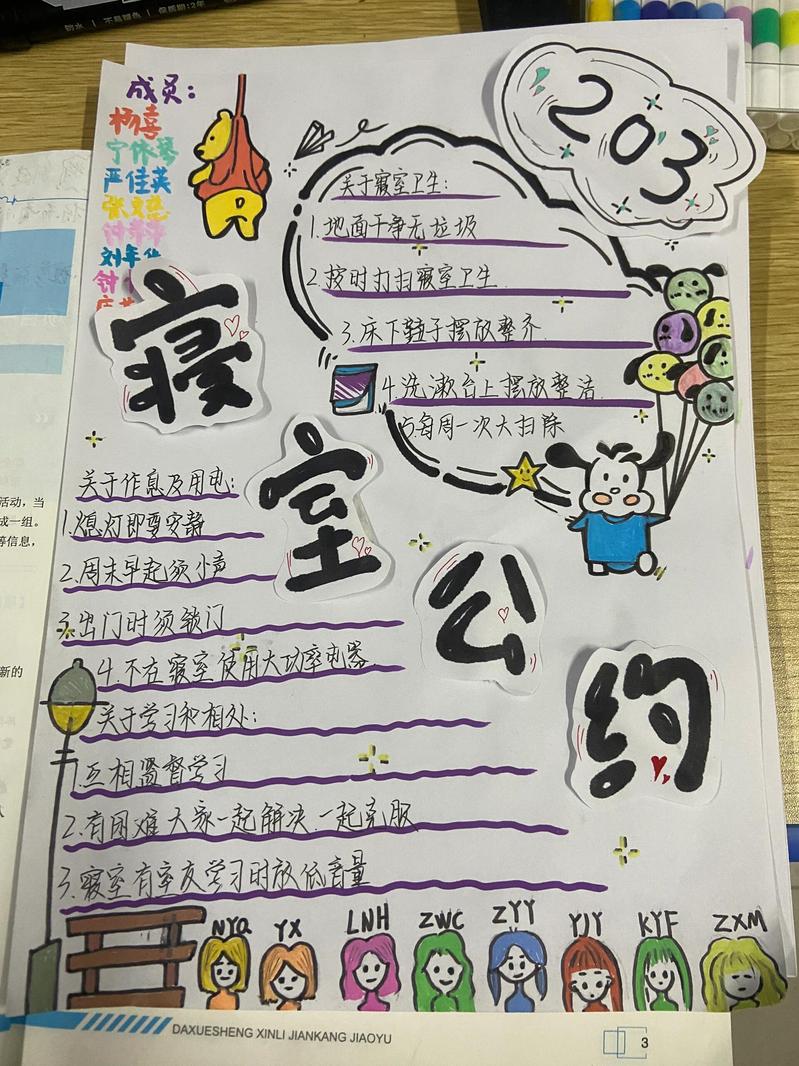 成员:
杨
宁
严佳英
张文
刘年
203
寝室公约
关于寝室卫生:
1.地面干净无垃圾
2.按时打扫寝室卫生
3.床下鞋子摆放整齐
4.洗漱台上摆放整洁
5.每周一次大扫除
关于作息及用电:
1.熄灯即要安静
2.周末早起须小声
3.出门时须锁门
4.不在寝室使用大功率电器
关于学习和相处:
1.互相监督学习
2.有困难大家一起解决.一起克服
3.寝室有室友学习时放低音量
NYQ YX LNH ZWC ZYY YJY KYF ZXM
DAXUESHENG XINLI JIANKANG JIAOYU
3
活动，当
成一组。
等信息，
新的